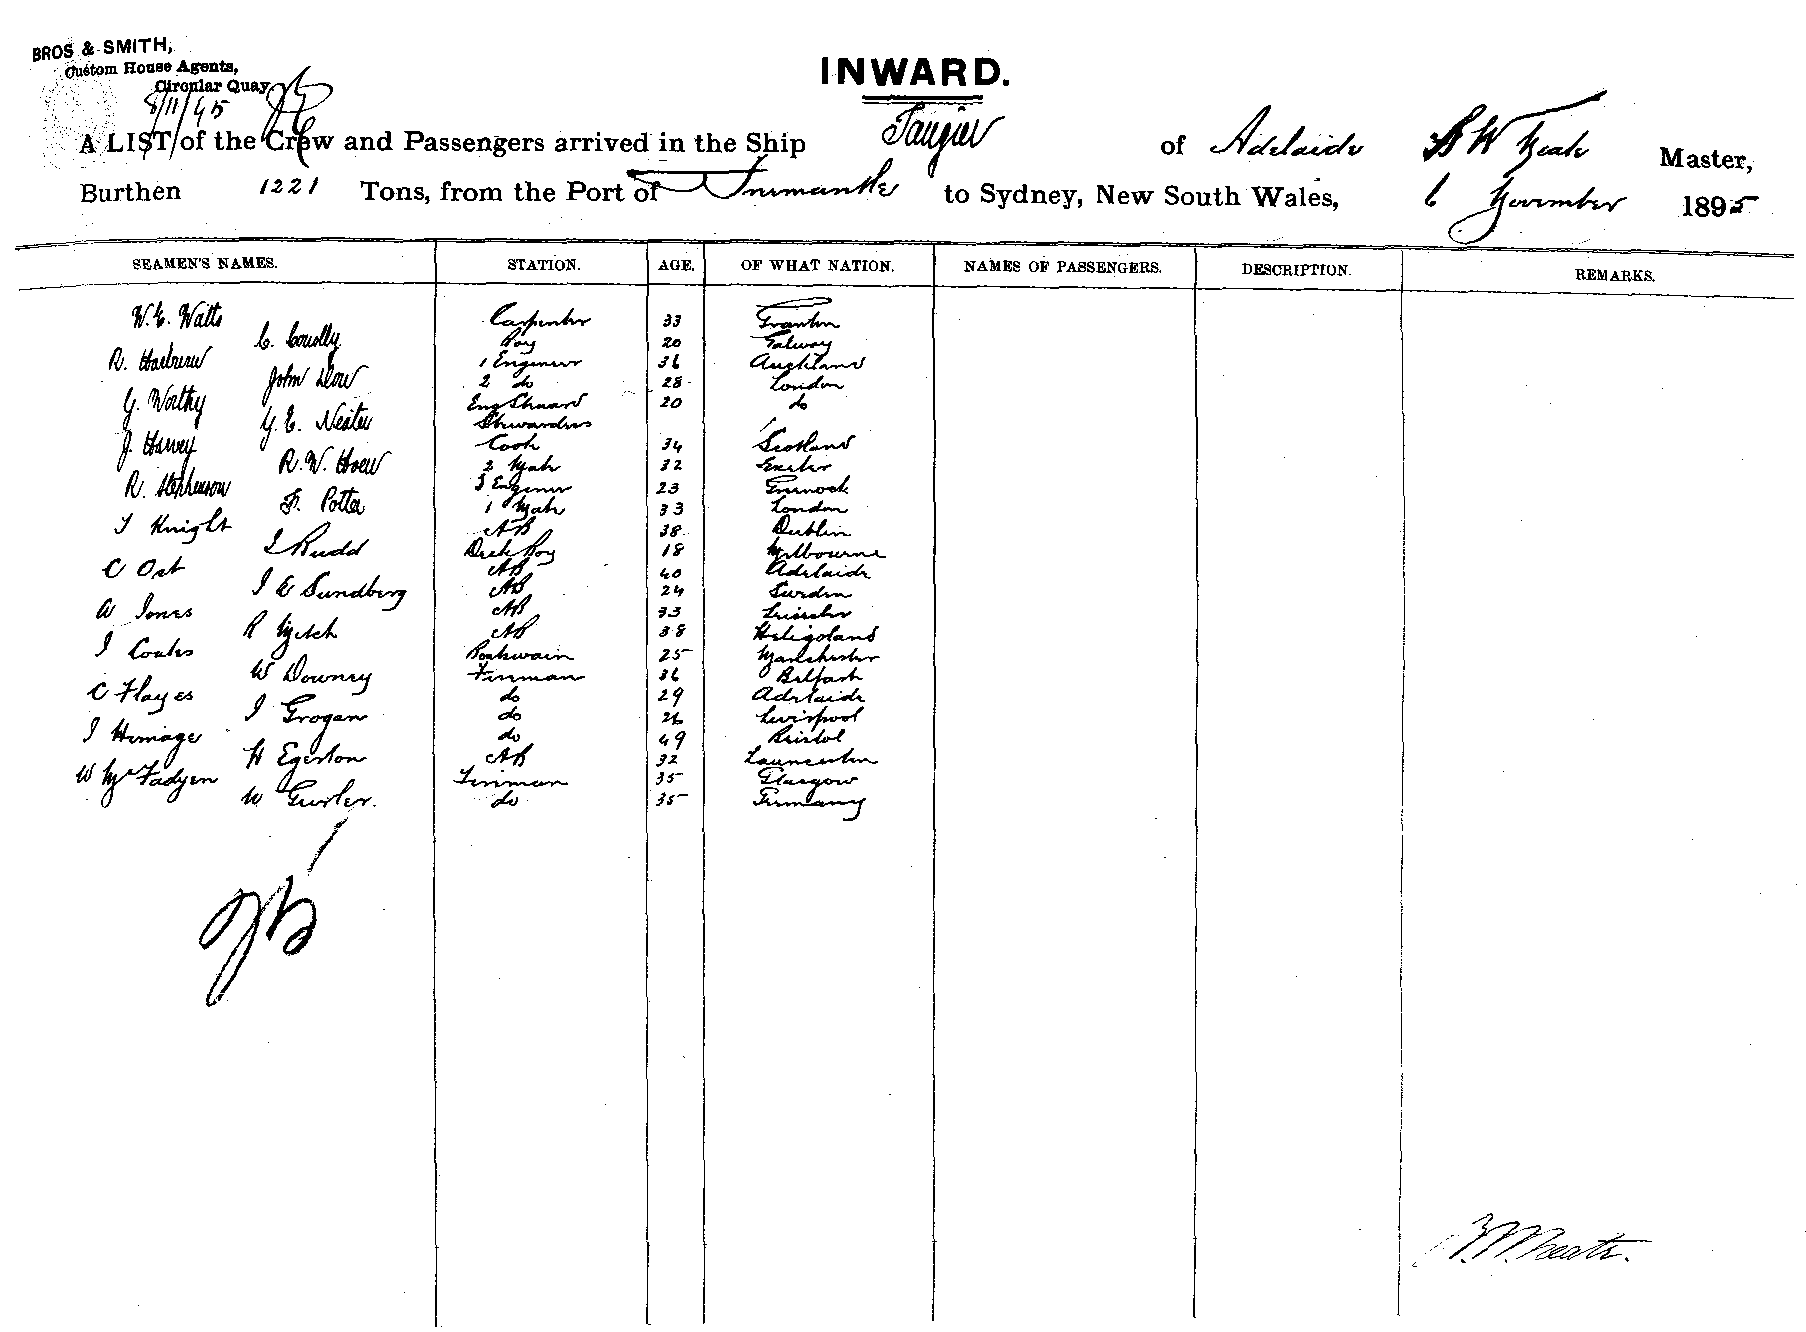 BROS & SMITH,
Custom House Agents,
Circular Quay
8/11/95
INWARD.
A LIST of the Crew and Passengers arrived in the Ship Tangier of Adelaide Master,
Burthen 1221 Tons, from the Port of Fremantle to Sydney, New South Wales, 6 November 1895
SEAMEN'S NAMES. STATION. AGE. OF WHAT NATION. NAMES OF PASSENGERS. DESCRIPTION. REMARKS.
W. E. Watts Carpenter 33
C. Conolly Boy 20 Galway
R. 1 Engineer 36 Auckland
John Dow 2 do 28 London
G. Worthy Eng Steward 20 do
G. E. Stewardess
J. Harvey Cook 34 Scotland
R. W. 2 Mate 32 Exeter
R. Stephenson 3 Engineer 23 Greenock
F. Potter 1 Mate 33 London
T Knight AB 38 Dublin
J Rudd Deck Boy 18 Melbourne
C Ost AB 40 Adelaide
J E Sundberg AB 24 Sweden
A Jones AB 33 Leicester
R AB 38 Heligoland
J Coates Boatswain 25 Manchester
W Downey Fireman 36 Belfast
C Hayes do 29 Adelaide
J Grogan do 26 Liverpool
J do 49 Bristol
H Egerton AB 32 Launceston
W McFadyen Fireman 35 Glasgow
W do 35 Germany